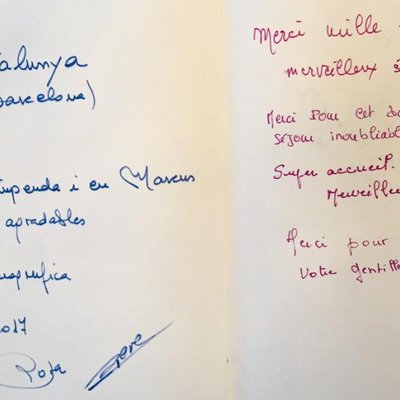 alunya
arcelona)
tupenda i en Marcus
agradables
nografica
017
Rosa Pere
Merci mille
merveilleux s
Merci pour cet
séjour inoubliabl
Super accueil.
Merveille
Merci pour
votre gentille